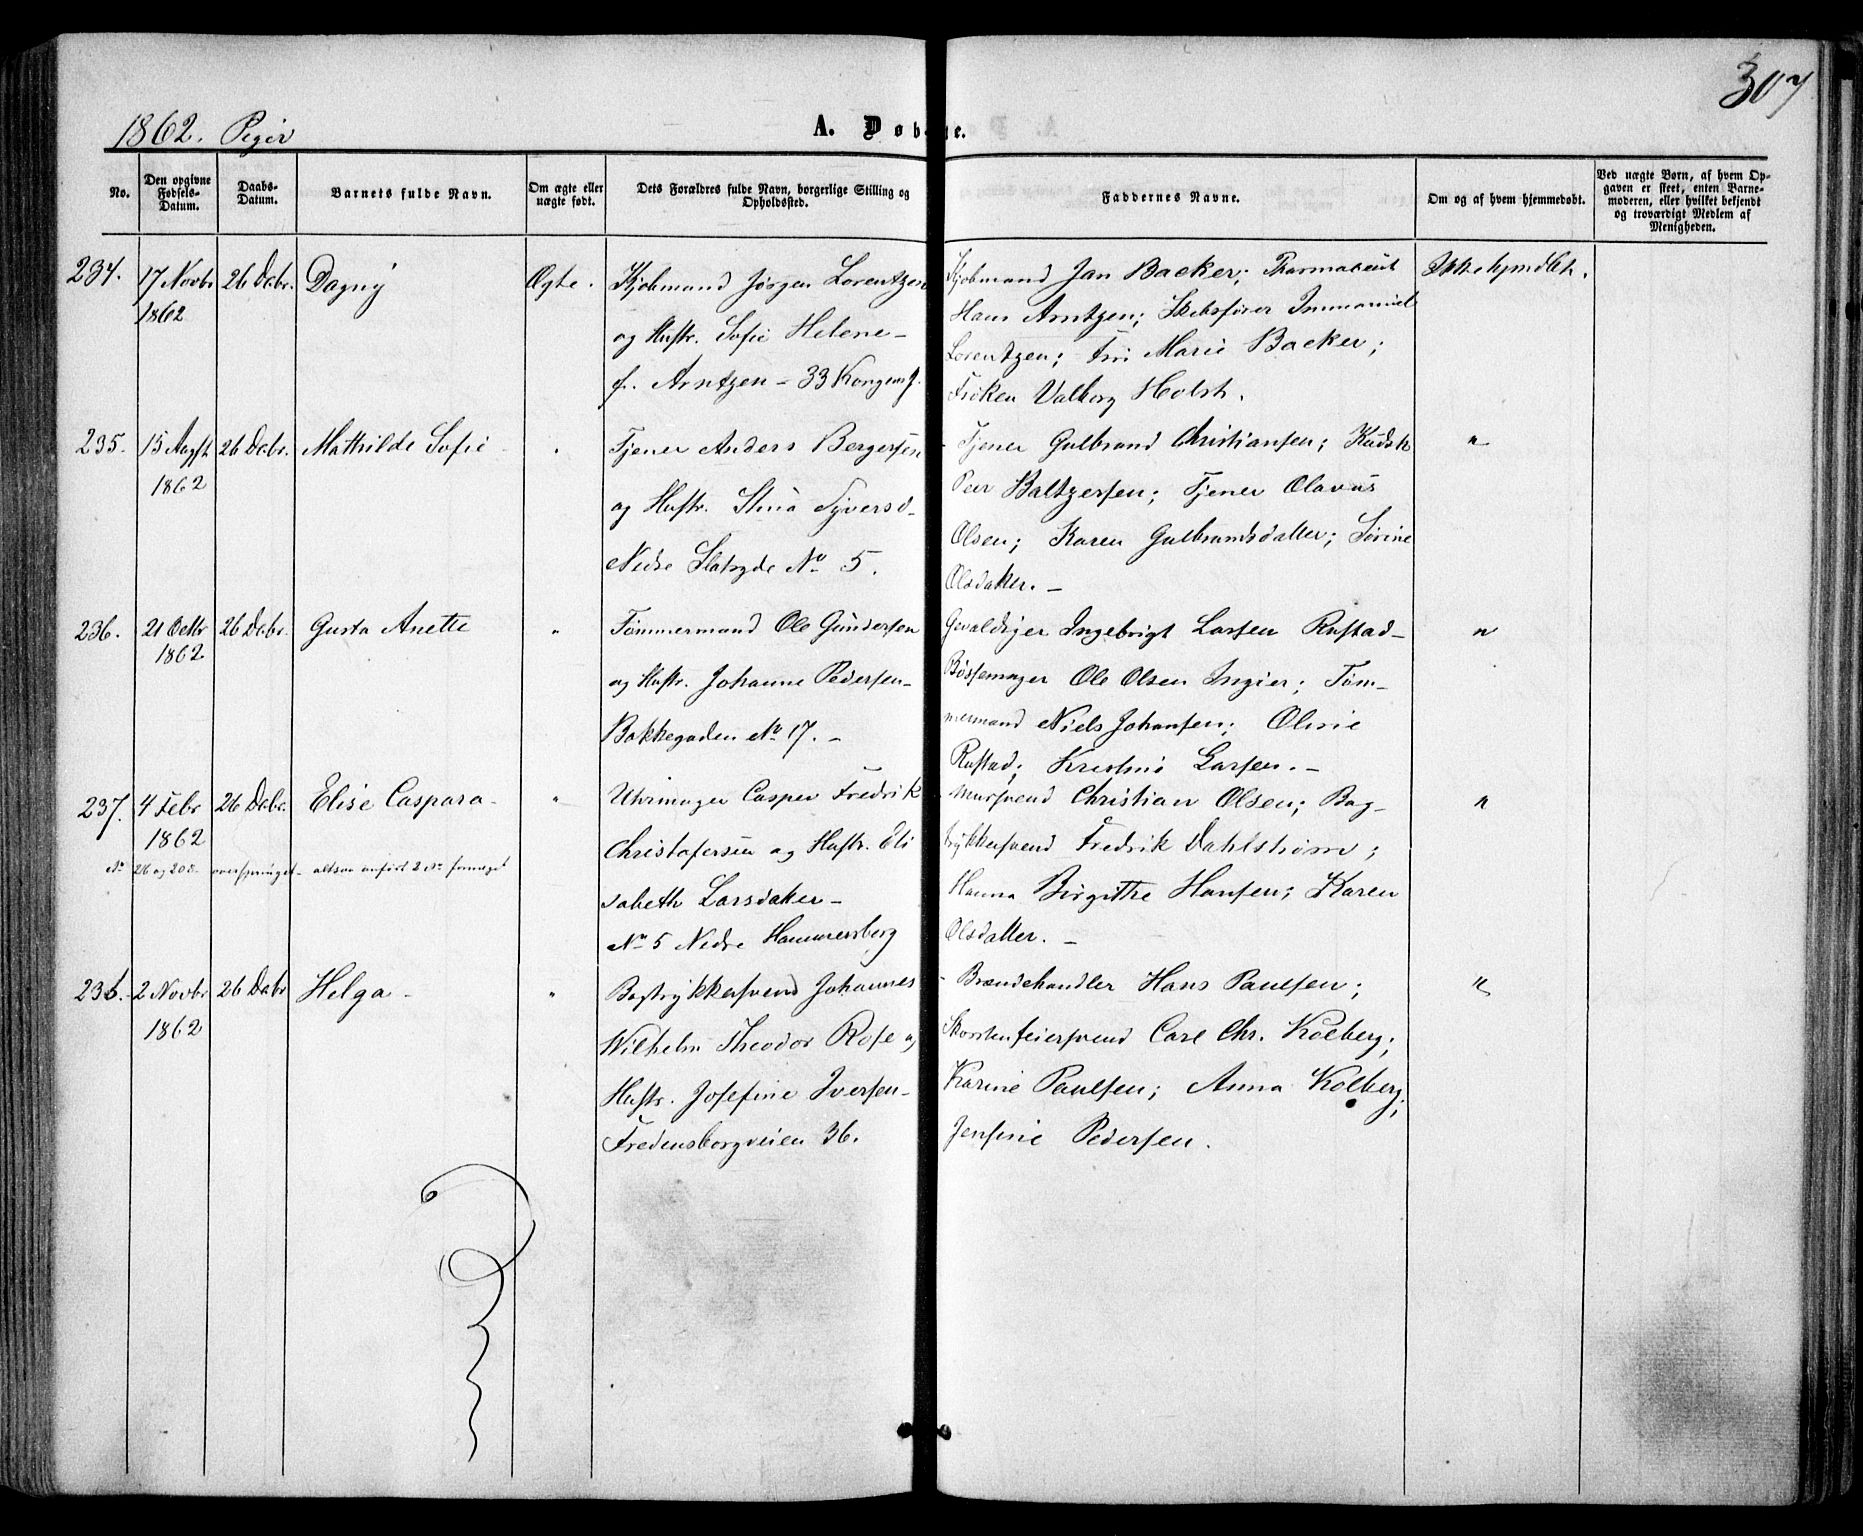 307
1862. Piger
A. Døbte.
No.
Den opgivne Fødsels-Datum.
Daabs-Datum.
Barnets fulde Navn.
Om ægte eller uægte født.
Dets Forældres fulde Navn, borgerlige Stilling og Opholdssted.
Faddernes Navne.
Om og af hvem hjemmedøbt.
Ved uægte Børn, af hvem Opgaven er skeet, enten Barnemoderen, eller hvilket bekjendt og troværdigt Medlem af Menigheden.
234. 17 Novbr 26 Decbr. Dagny Ægte. Kjøbmand Jørgen Lorentzen Kjøbmand Jan Backer; Pharmaceut Ikke hjmdbt.
1862 og Hustr. Sofie Helene - Hans Arntzen; Skibsfører Immanuel
f. Arntzen - 33 Kongensg. Lorentzen; Fru Marie Backer;
Frøken Valborg Holst.
235. 15 Augst 26 Decbr. Mathilde Sofie " Tjener Anders Bergersen - Tjener Gulbrand Christiansen; Kudsk "
1862 og Hustr. Stina Syversd- Peer Baltzersen; Tjener Olavus
Nedre Slotsgde No 5. Olsen; Karen Gulbrandsdatter; Sørine
Olsdatter. -
236. 21 Octbr 26 Decbr. Gusta Anette " Tømmermand Ole Gundersen Gevaldiger Ingebrigt Larsen Rustad- "
1862 og Hustr. Johanne Pedersen- Bøssemager Ole Olsen Ingier; Tøm-
Bakkegaden No 17. - mermand Niels Johansen; Oline
Rustad; Kristine Larsen. -
237. 4 Febr 26 Decbr. Elise Caspara - " Uhrmager Casper Fredrik Mursvend Christian Olsen; Bog- "
1862 Christofersen og Hustr. Eli trykkersvend Fredrik Dahlstrøm;
No 26 og 208. overspringet - altsaa anført 2 No formeget
sabeth Larsdatter - Hanna Birgitte Hansen; Karen
No 5 Nedre Hammersberg Olsdatter. -
236. - 2 Novbr 26 Decbr Helga - " Bogtrykkersvend Johannes - Brændehandler Hans Paulsen; "
1862 Wilhelm Theodor Rose og Skorstenfeiersvend Carl Chr. Kolberg;
Hustr. Josefine Iversen- Karine Paulsen; Anna Kolberg;
Fredensborgveien 36. Jensine Pedersen.